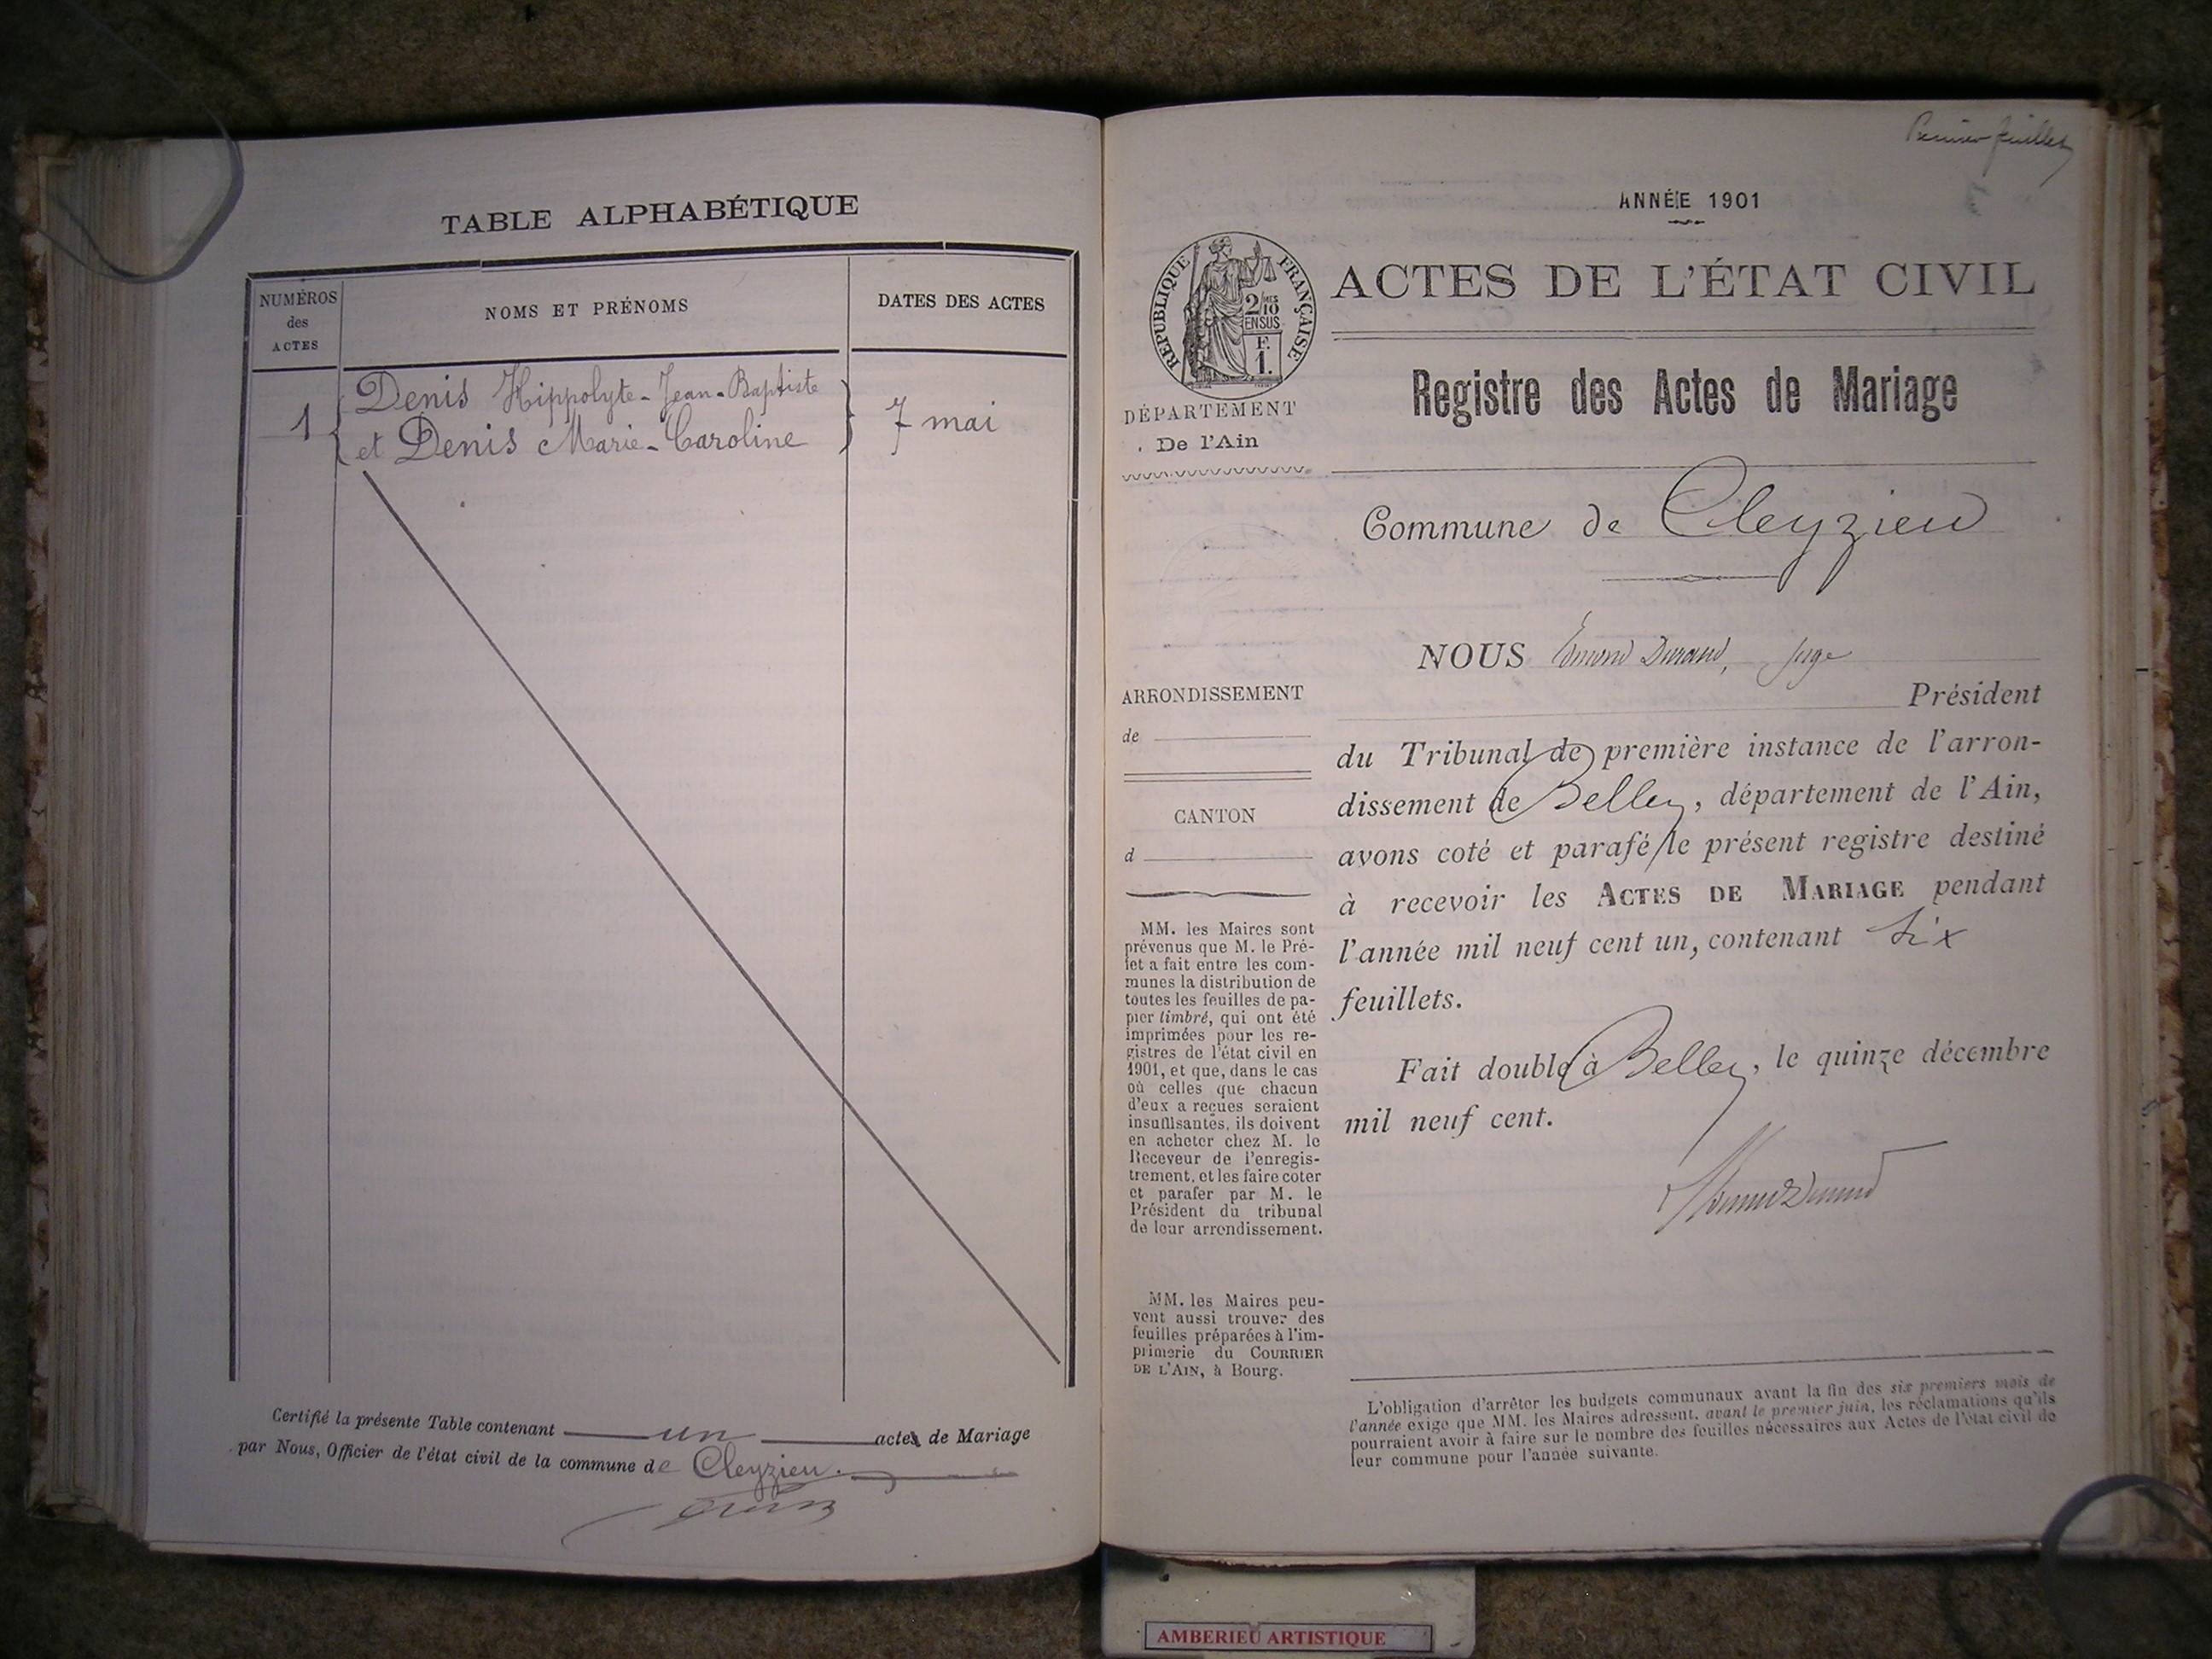 TABLE ALPHABÉTIQUE
NUMÉROS
des
ACTES
NOMS ET PRÉNOMS
DATES DES ACTES
1
Denis Hippolyte-Jean-Baptiste
et Denis Marie-Caroline
7 mai
Certifié la présente Table contenant un actes de Mariage
par Nous, Officier de l'état civil de la commune de Cleyzieu.
Premier feuillet
ANNÉE 1901
RÉPUBLIQUE FRANÇAISE
2/10
MES
EN SUS
F.
1.
ACTES DE L'ÉTAT CIVIL
DÉPARTEMENT
De l'Ain
Registre des Actes de Mariage
Commune de Cleyzieu
NOUS Edmond Durand, juge
Président
du Tribunal de première instance de l'arron-
dissement de Belley, département de l'Ain,
avons coté et parafé le présent registre destiné
à recevoir les ACTES DE MARIAGE pendant
l'année mil neuf cent un, contenant six
feuillets.
Fait double à Belley, le quinze décembre
mil neuf cent.
ARRONDISSEMENT
de
CANTON
d
MM. les Maires sont
prévenus que M. le Pré-
fet a fait entre les com-
munes la distribution de
toutes les feuilles de pa-
pier timbré, qui ont été
imprimées pour les re-
gistres de l'état civil en
1901, et que, dans le cas
où celles que chacun
d'eux a reçues seraient
insuffisantes, ils doivent
en acheter chez M. le
Receveur de l'enregis-
trement, et les faire coter
et parafer par M. le
Président du tribunal
de leur arrondissement.
MM. les Maires peu-
vent aussi trouver des
feuilles préparées à l'im-
primerie du COURRIER
DE L'AIN, à Bourg.
L'obligation d'arrêter les budgets communaux avant la fin des six premiers mois de
l'année exige que MM. les Maires adressent, avant le premier juin, les réclamations qu'ils
pourraient avoir à faire sur le nombre des feuilles nécessaires aux Actes de l'état civil de
leur commune pour l'année suivante.
AMBERIEU ARTISTIQUE